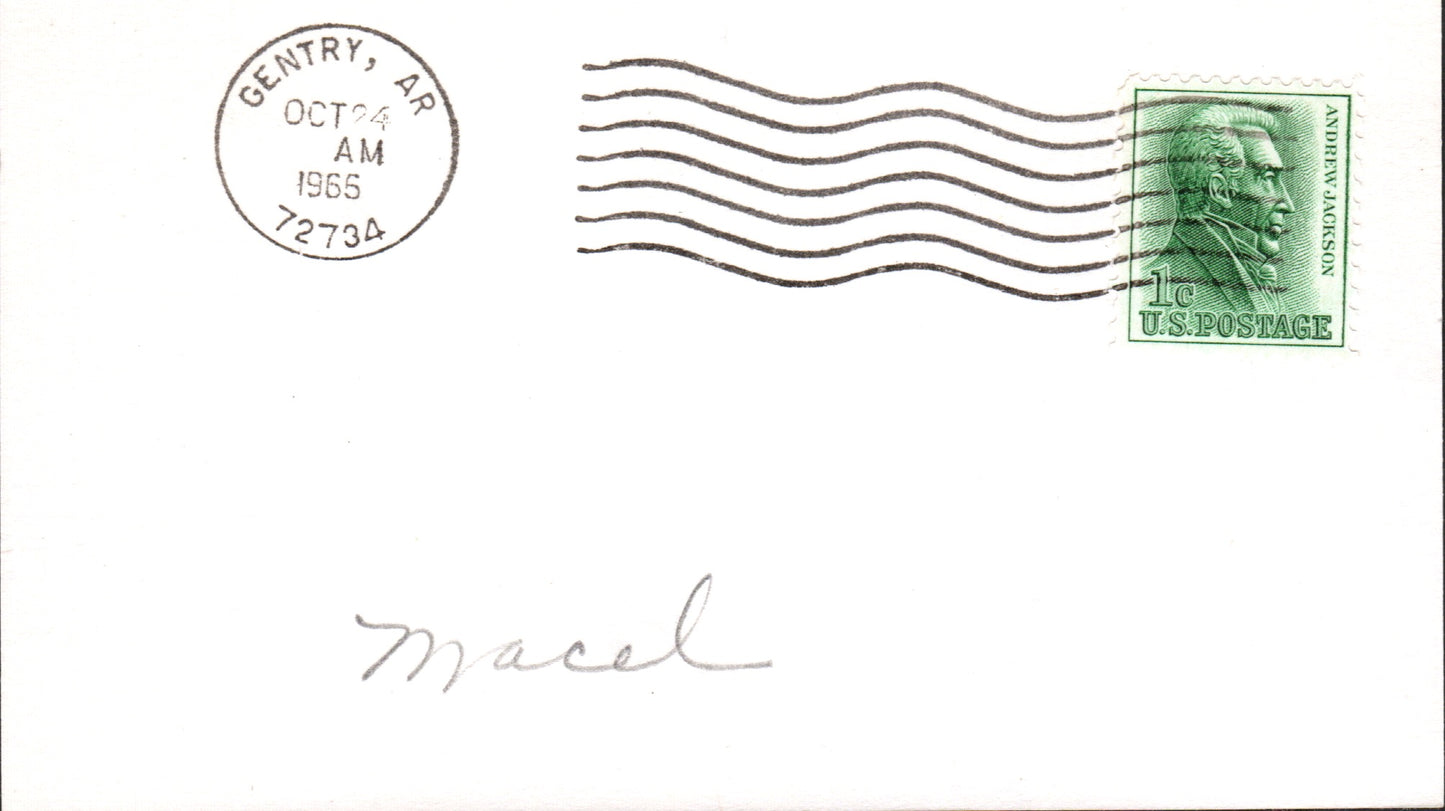 GENTRY, AR
OCT 24
AM
1966
72734
ANDREW JACKSON
1c
U.S. POSTAGE
Macel